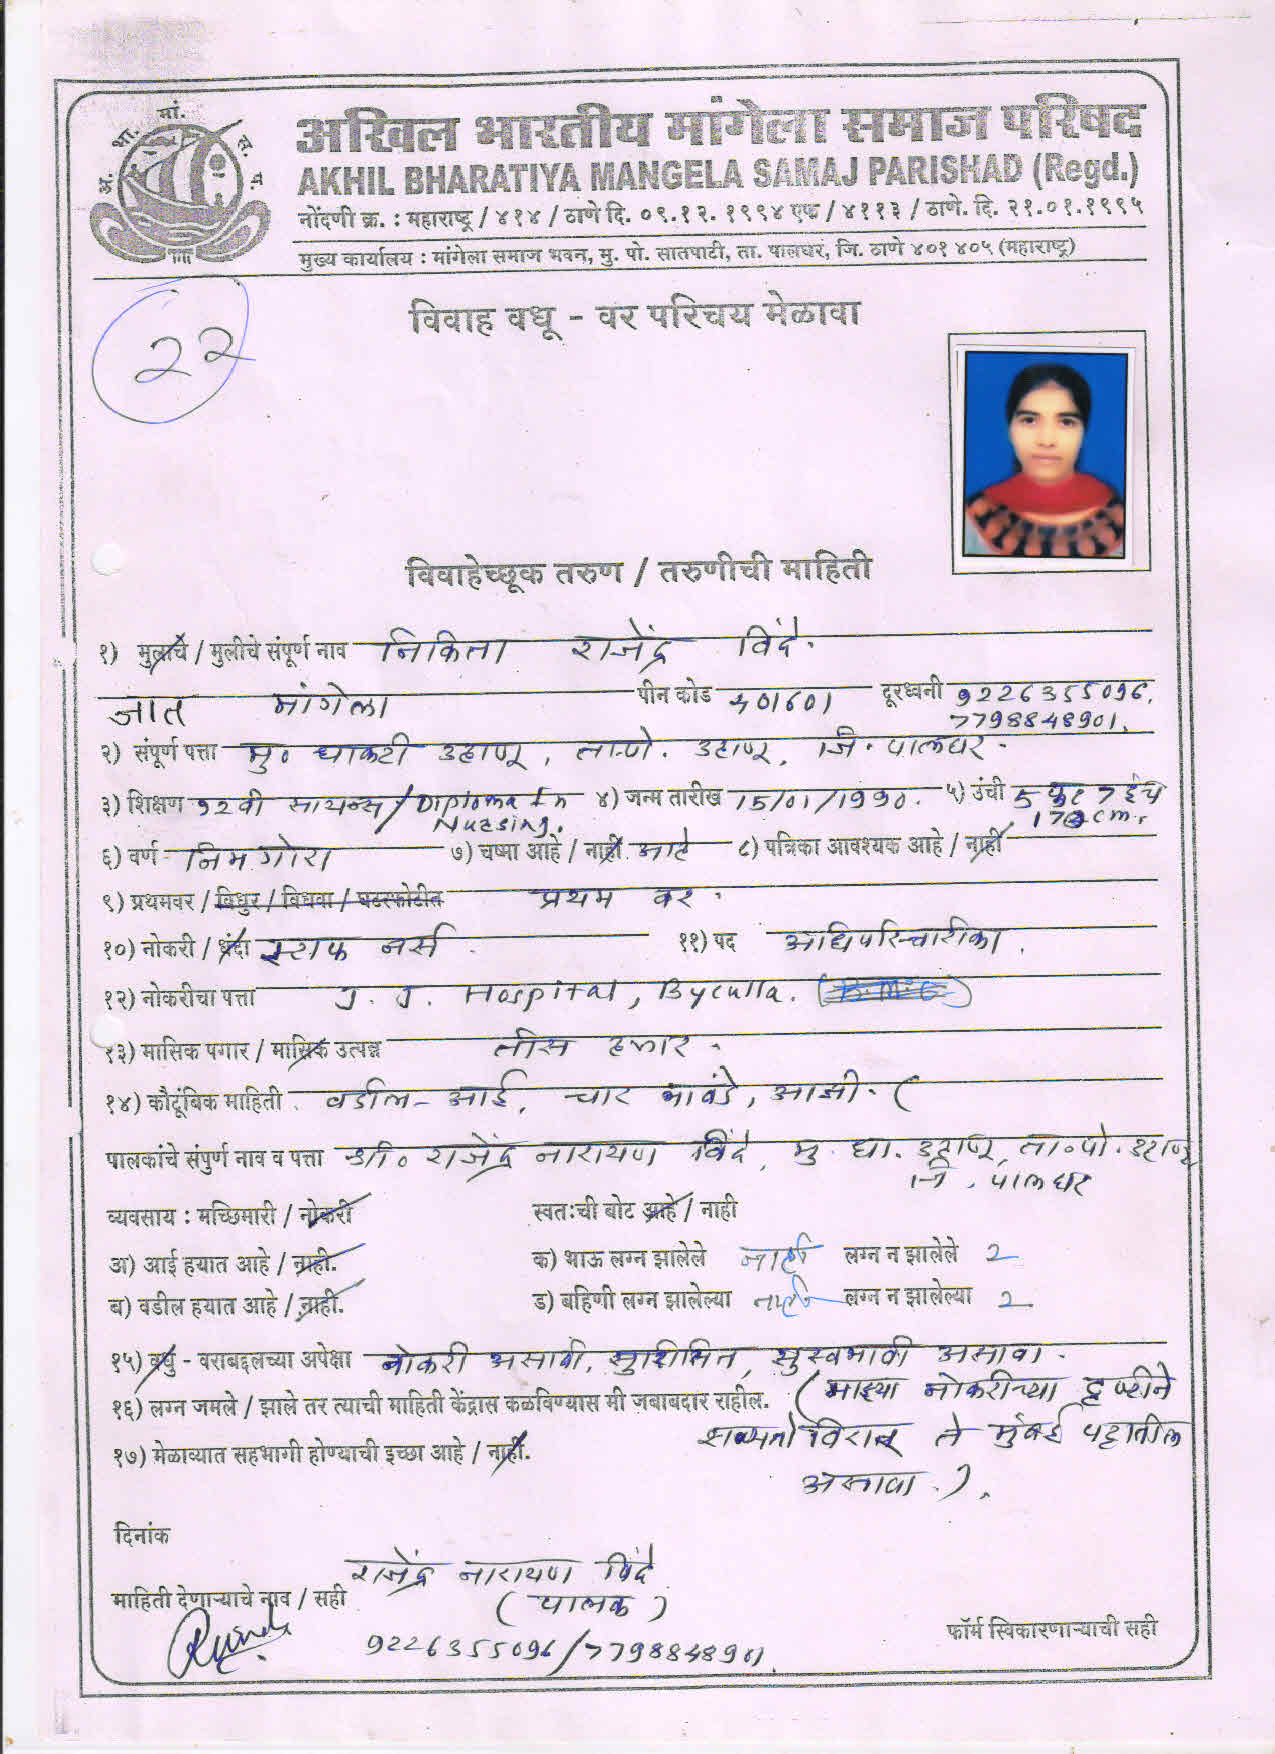 अ. भा. मां. स. प.
अखिल भारतीय मांगेला समाज परिषद
AKHIL BHARATIYA MANGELA SAMAJ PARISHAD (Regd.)
नोंदणी क्र. : महाराष्ट्र / ४१४ / ठाणे दि. ०९.१२. १९९४ एफ / ४११३ / ठाणे. दि. २१.०१.१९९५
मुख्य कार्यालय : मांगेला समाज भवन, मु. पो. सातपाटी, ता. पालघर, जि. ठाणे ४०१ ४०५ (महाराष्ट्र)
विवाह वधू - वर परिचय मेळावा
22
विवाहेच्छूक तरुण / तरुणीची माहिती
१) मुलाचे / मुलीचे संपूर्ण नाव निकिता राजेंद्र विंदे.
जात मांगेला पीन कोड 401601 दूरध्वनी 9226355096,
7798848901.
२) संपूर्ण पत्ता मु. धाकटी डहाणू, ता.पो. डहाणू, जि. पालघर.
३) शिक्षण १2वी सायन्स / Diploma In ४) जन्म तारीख 15/01/1990. ५) उंची 5 फुट 7 इंच
Nursing. cm.
६) वर्ण निमगोरा ७) चष्मा आहे / नाही आहे ८) पत्रिका आवश्यक आहे / नाही
९) प्रथमवर / विधुर / विधवा / घटस्फोटीत प्रथम वर.
१०) नोकरी / धंदा स्टाफ नर्स ११) पद अधिपरिचारीका.
१२) नोकरीचा पत्ता J. J. Hospital, Byculla.
१३) मासिक पगार / मासिक उत्पन्न तीस हजार.
१४) कौटूंबिक माहिती वडील - आई, चार भावंडे, आजी. (
पालकांचे संपुर्ण नाव व पत्ता श्री. राजेंद्र नारायण विंदे, मु. धा. डहाणू, ता.पो. डहाणू
जि. पालघर
व्यवसाय : मच्छिमारी / नोकरी स्वतःची बोट आहे / नाही
अ) आई हयात आहे / नाही. क) भाऊ लग्न झालेले नाही लग्न न झालेले 2
ब) वडील हयात आहे / नाही. ड) बहिणी लग्न झालेल्या नाही लग्न न झालेल्या 2
१५) वधु - वराबद्दलच्या अपेक्षा नोकरी असावी, सुशिक्षित, सुस्वभावी असावा.
१६) लग्न जमले / झाले तर त्याची माहिती केंद्रास कळविण्यास मी जबाबदार राहील. (माझ्या नोकरीच्या दृष्टीने
१७) मेळाव्यात सहभागी होण्याची इच्छा आहे / नाही. शक्यतो विरार ते मुंबई पट्टातील
असावा.).
दिनांक
राजेंद्र नारायण विंदे
माहिती देणाऱ्याचे नाव / सही (पालक)
9226355096 / 7798848901.
फॉर्म स्विकारणाऱ्याची सही